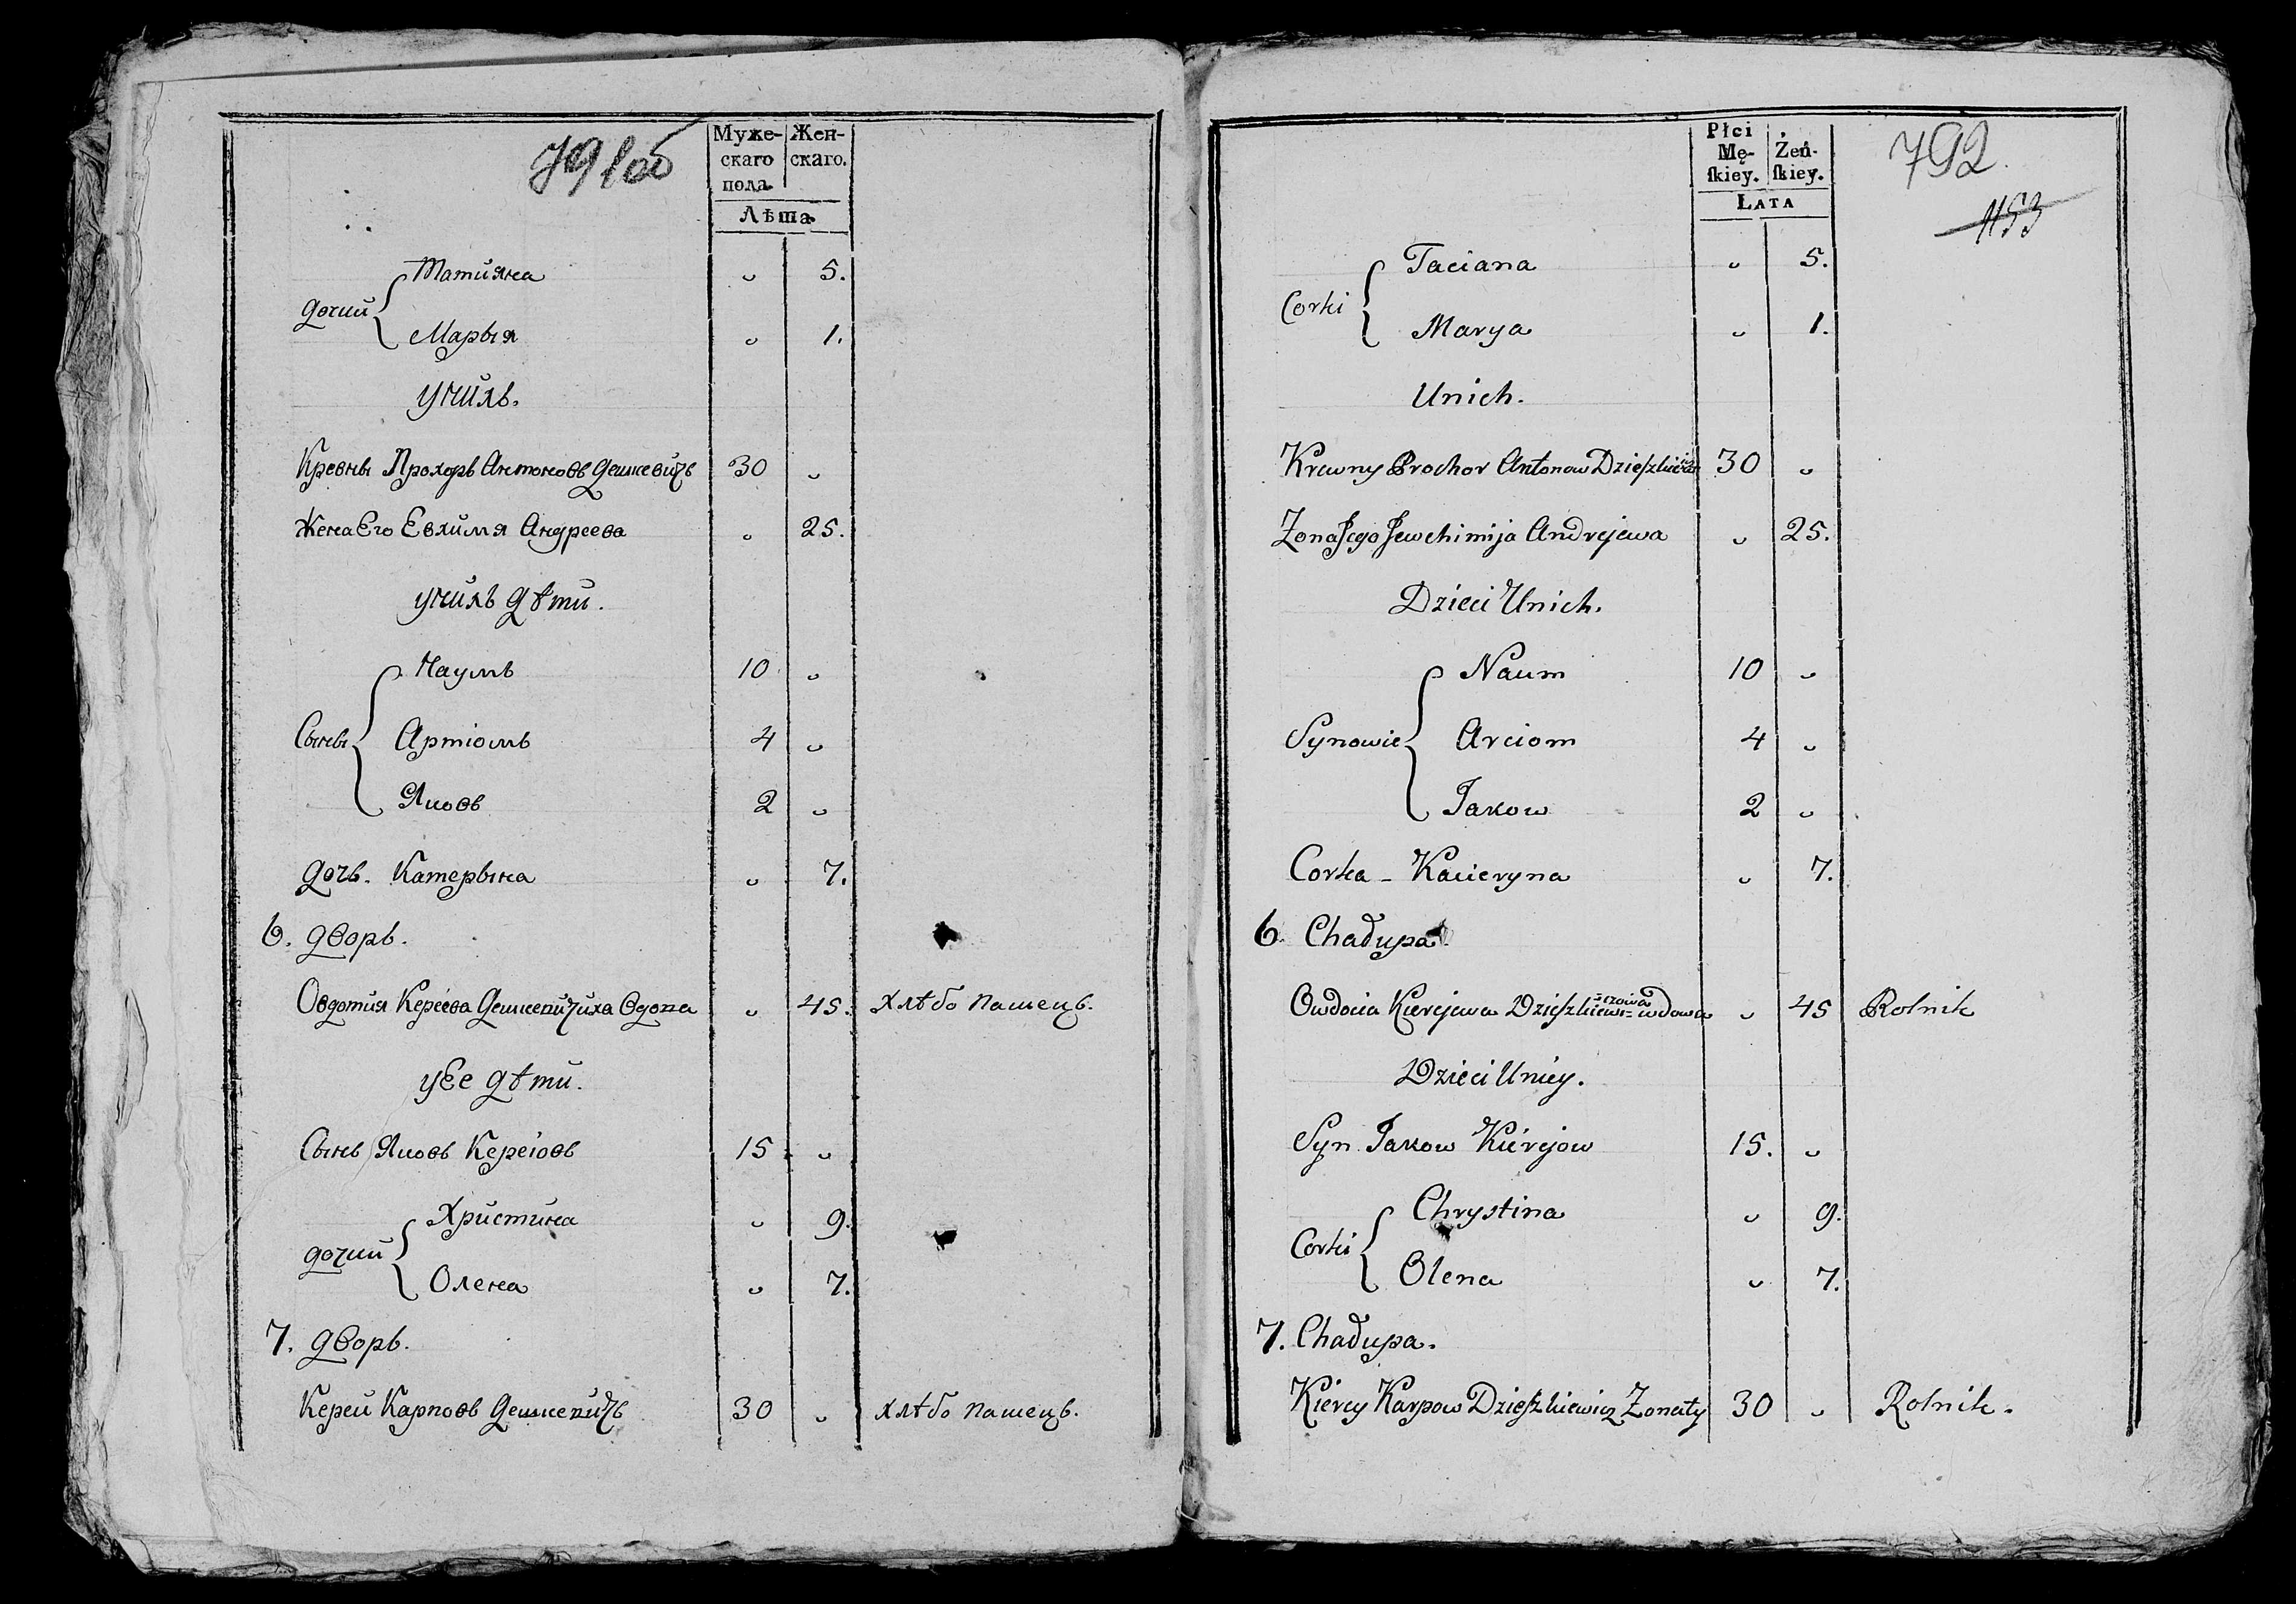 791об
Муже- Жен-
скаго скаго.
пола.
Лѣта
Татияна " 5.
дочки
Марыя " 1.
у нихъ.
Кревны Прохоръ Антоновъ Дешкевичъ 30 "
Жена Его Евхимя Андреева " 25.
у нихъ дѣти.
Наумъ 10 "
Сыны Артіомъ 4 "
Яковъ 2 "
дочь. Катерына " 7.
6. дворъ.
Овдотия Кереева Дешкевичиха вдова " 45. хлѣбо пашецъ.
у Ее дѣти.
Сынъ Яковъ Кереіовъ 15 "
Христина " 9.
дочки
Олена " 7.
7. дворъ.
Керей Карповъ Дешкевичъ 30 " хлѣбо пашецъ.
792.
1153
Płci
Mę- Żeń-
ſkiey. ſkiey.
LATA
Taciana " 5.
Corki
Marya " 1.
U nich.
Krewny Prochor Antonow Dzieszkiewicz 30 "
Zona Jego Jewchimija Andrejewa " 25.
Dzieci U nich.
Naum 10 "
Synowie Arciom 4 "
Jakow 2 "
Corka - Kacieryna " 7.
6. Chałupa.
Owdocia Kierejewa Dzieszkiewi=czowa wdowa " 45 Rolnik
Dzieci U niey.
Syn Jakow Kierejow 15. "
Chrystina " 9.
Corki
Olena " 7.
7. Chałupa.
Kierey Karpow Dzieszkiewicz Zonaty 30 " Rolnik.